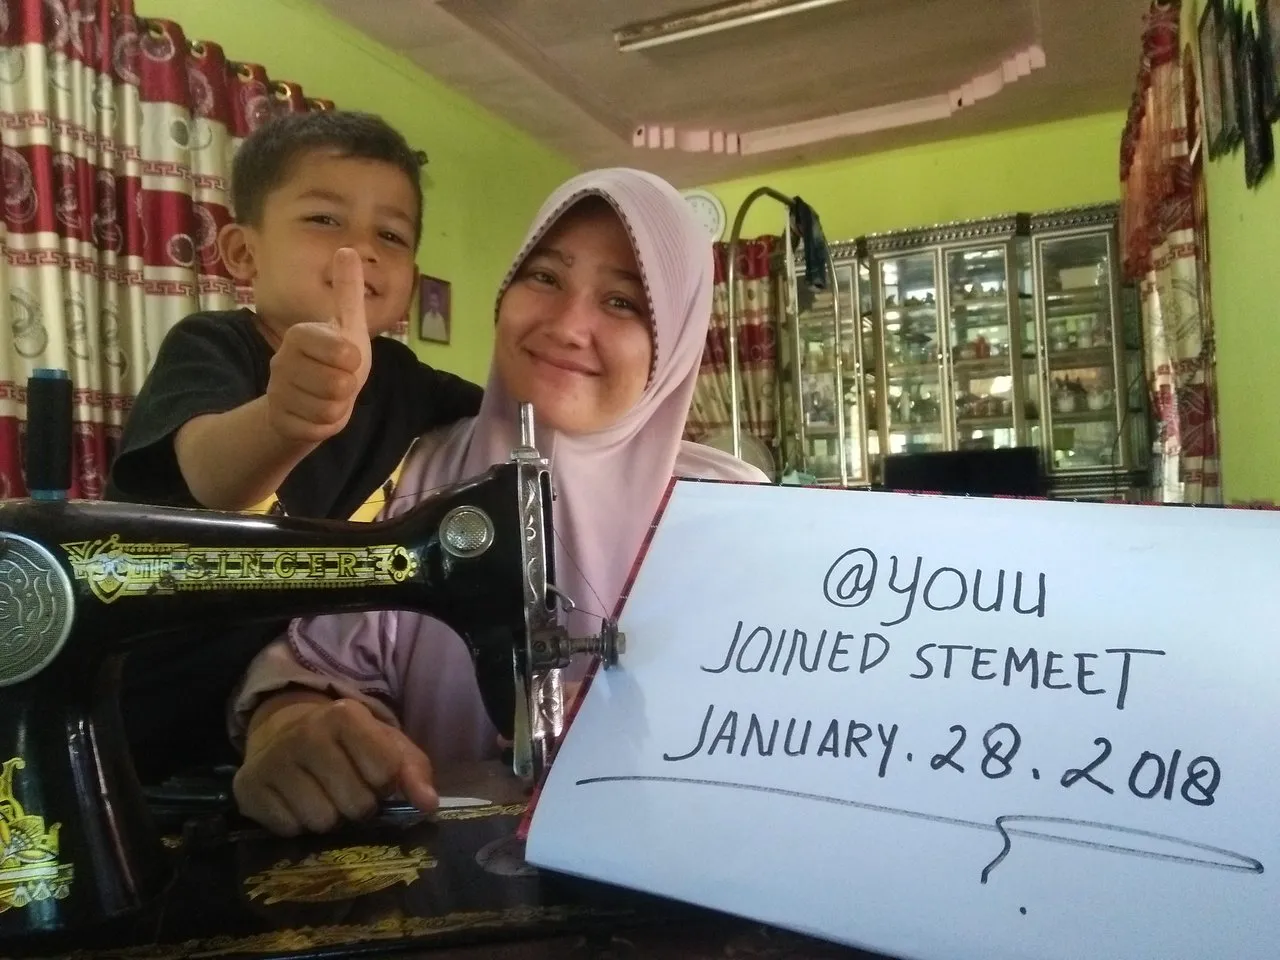 SINGER
@YOUU
JOINED STEMEET
JANUARY. 28. 2018